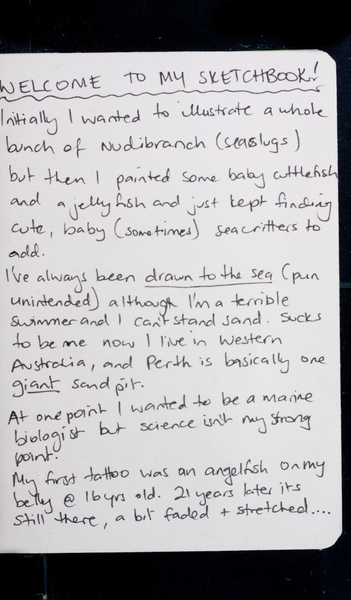 WELCOME TO MY SKETCHBOOK!
Initially I wanted to illustrate a whole
bunch of Nudibranch (seaslugs)
but then I painted some baby cuttlefish
and a jellyfish and just kept finding
cute, baby (sometimes) seacritters to
add.
I've always been drawn to the sea (pun
unintended) although I'm a terrible
swimmer and I can't stand sand. Sucks
to be me now I live in Western
Australia, and Perth is basically one
giant sand pit.
At one point I wanted to be a marine
biologist but science isn't my strong
point.
My first tattoo was an angelfish on my
belly @ 16 yrs old. 21 years later its
still there, a bit faded + stretched....